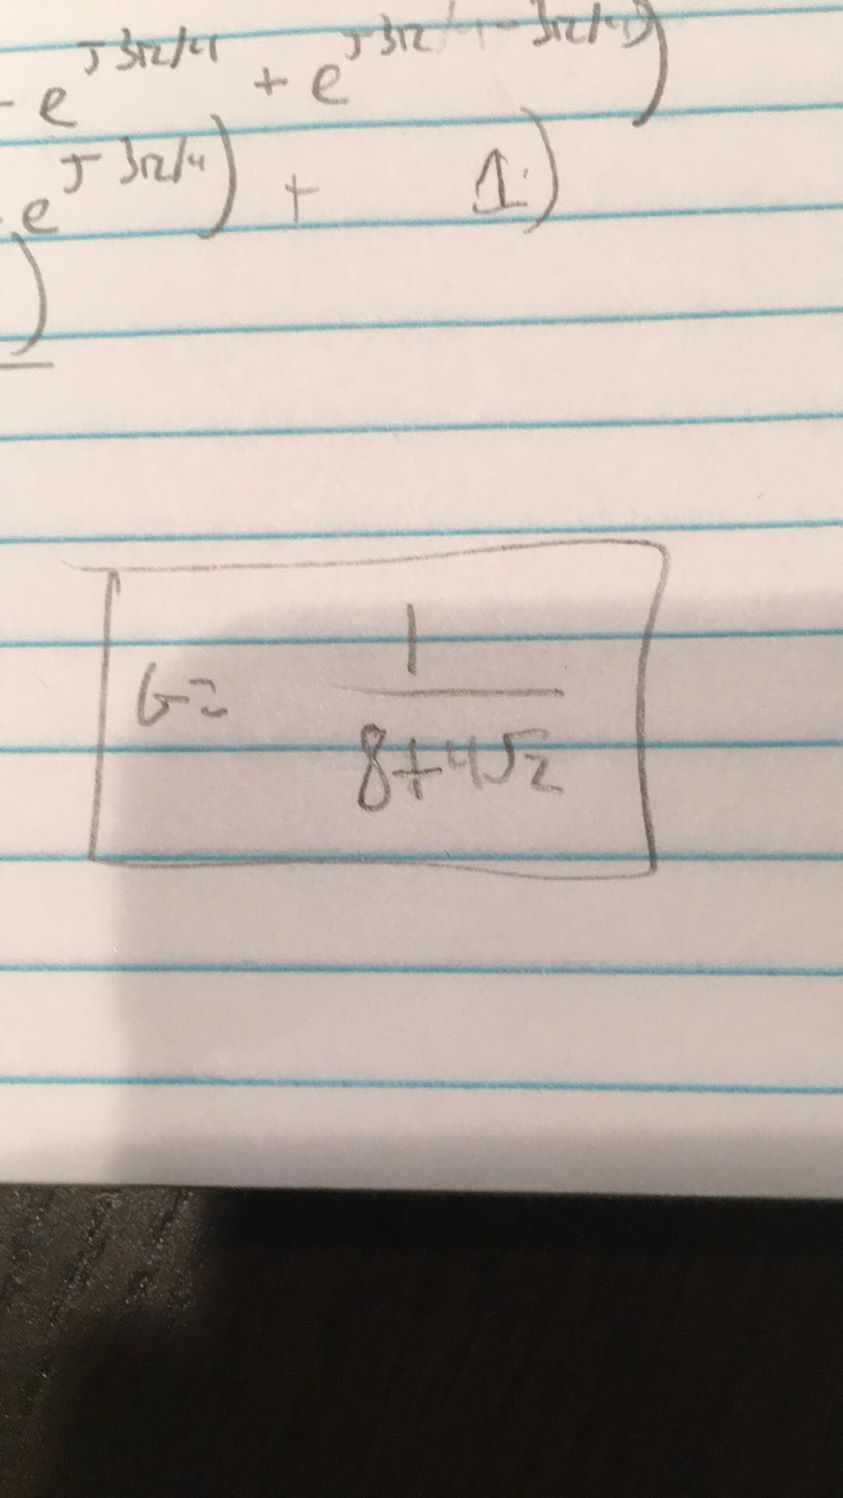 - e^{j3π/4} + e^{j3π/4-3π/4})
e^{j3π/4}) + 1)
)
G= 1
8+4√2